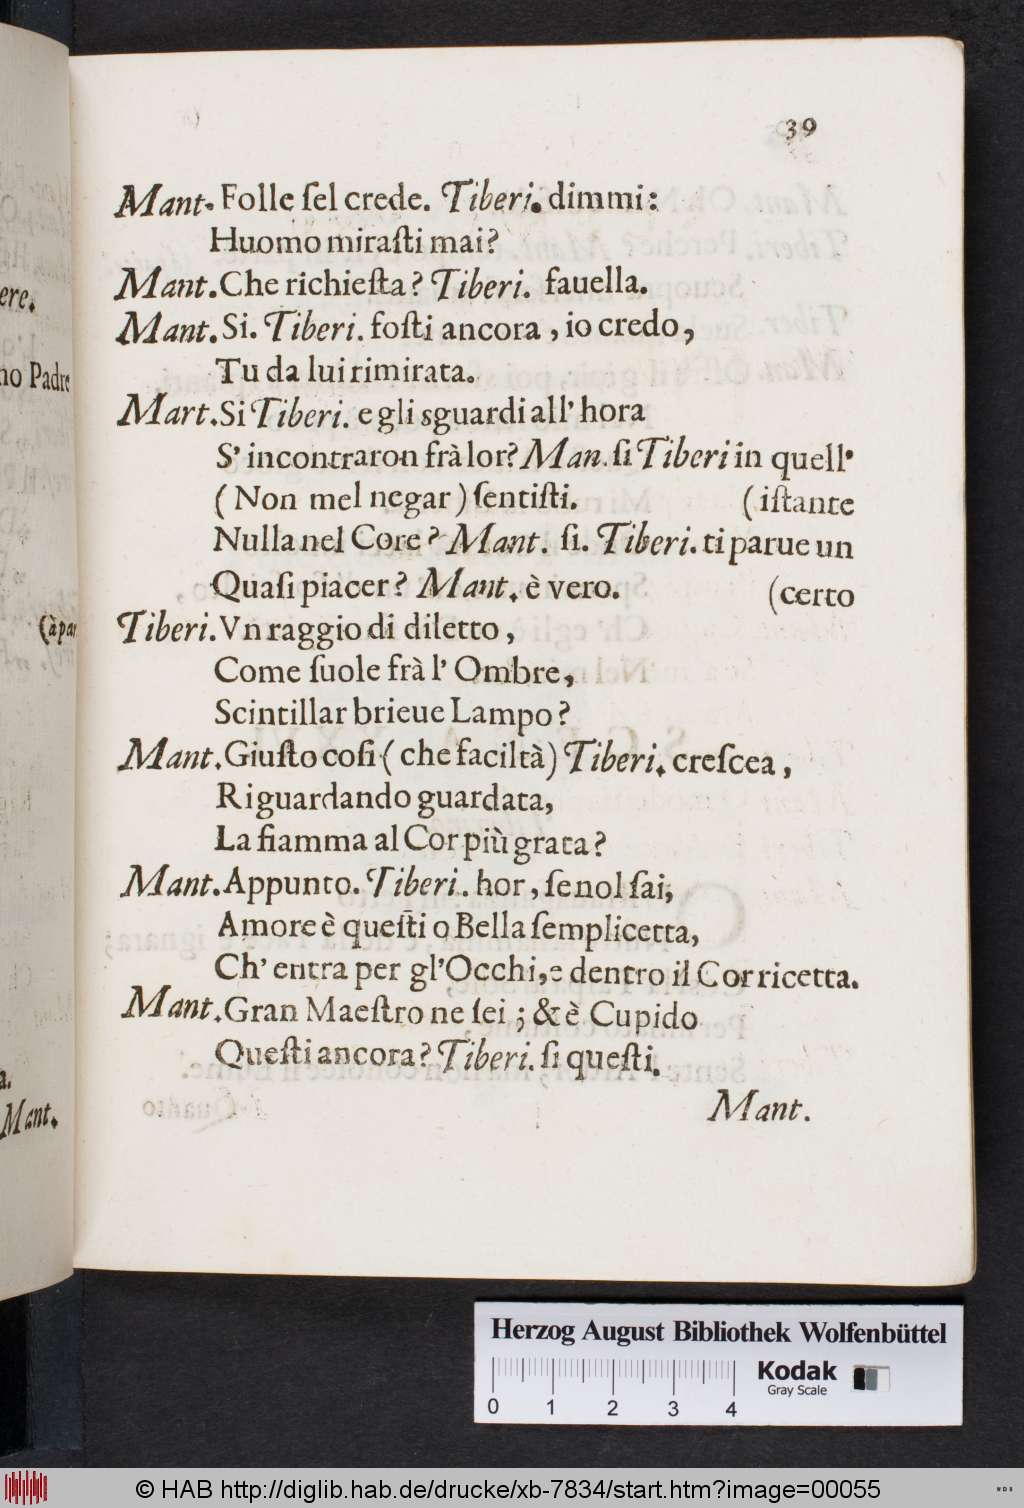 39
Mant. Folle ſel crede. Tiberi. dimmi:
Huomo miraſti mai?
Mant. Che richieſta? Tiberi. fauella.
Mant. Si. Tiberi. foſti ancora, io credo,
Tu da lui rimirata.
Mart. Si Tiberi. e gli sguardi all' hora
S' incontraron frà lor? Man. ſi Tiberi in quell'
(Non mel negar) ſentiſti. (iſtante
Nulla nel Core? Mant. ſi. Tiberi. ti parue un
Quaſi piacer? Mant. è vero. (certo
Tiberi. Vn raggio di diletto,
Come ſuole frà l' Ombre,
Scintillar brieue Lampo?
Mant. Giuſto coſi (che faciltà) Tiberi. creſcea,
Riguardando guardata,
La fiamma al Cor più grata?
Mant. Appunto. Tiberi. hor, ſe nol ſai,
Amore è queſti o Bella ſemplicetta,
Ch' entra per gl' Occhi, e dentro il Cor ricetta.
Mant. Gran Maeſtro ne ſei; & è Cupido
Queſti ancora? Tiberi. ſi queſti.
Mant.
ere.
no Padre
(à par
a.
Mant.
Herzog August Bibliothek Wolfenbüttel
Kodak
Gray Scale
0 1 2 3 4
© HAB http://diglib.hab.de/drucke/xb-7834/start.htm?image=00055